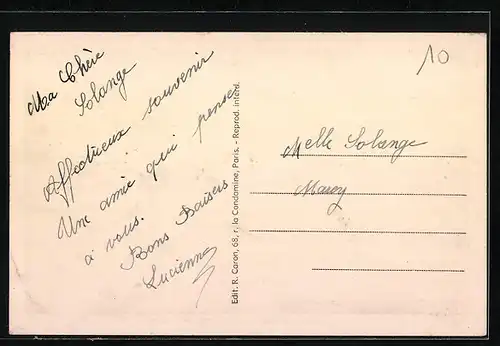 Ma Chère
Solange
Affectueux souvenir
Une amie qui pense
à vous.
Bons Baisers
Lucienne
Edit. R. Caron, 68, r. la Condamine, Paris. - Reprod. interd.
10
Melle Solange